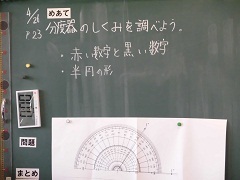 4/28
P23
めあて
分度器のしくみを調べよう。
・赤い数字と黒い数字
・半円の形
問題
まとめ